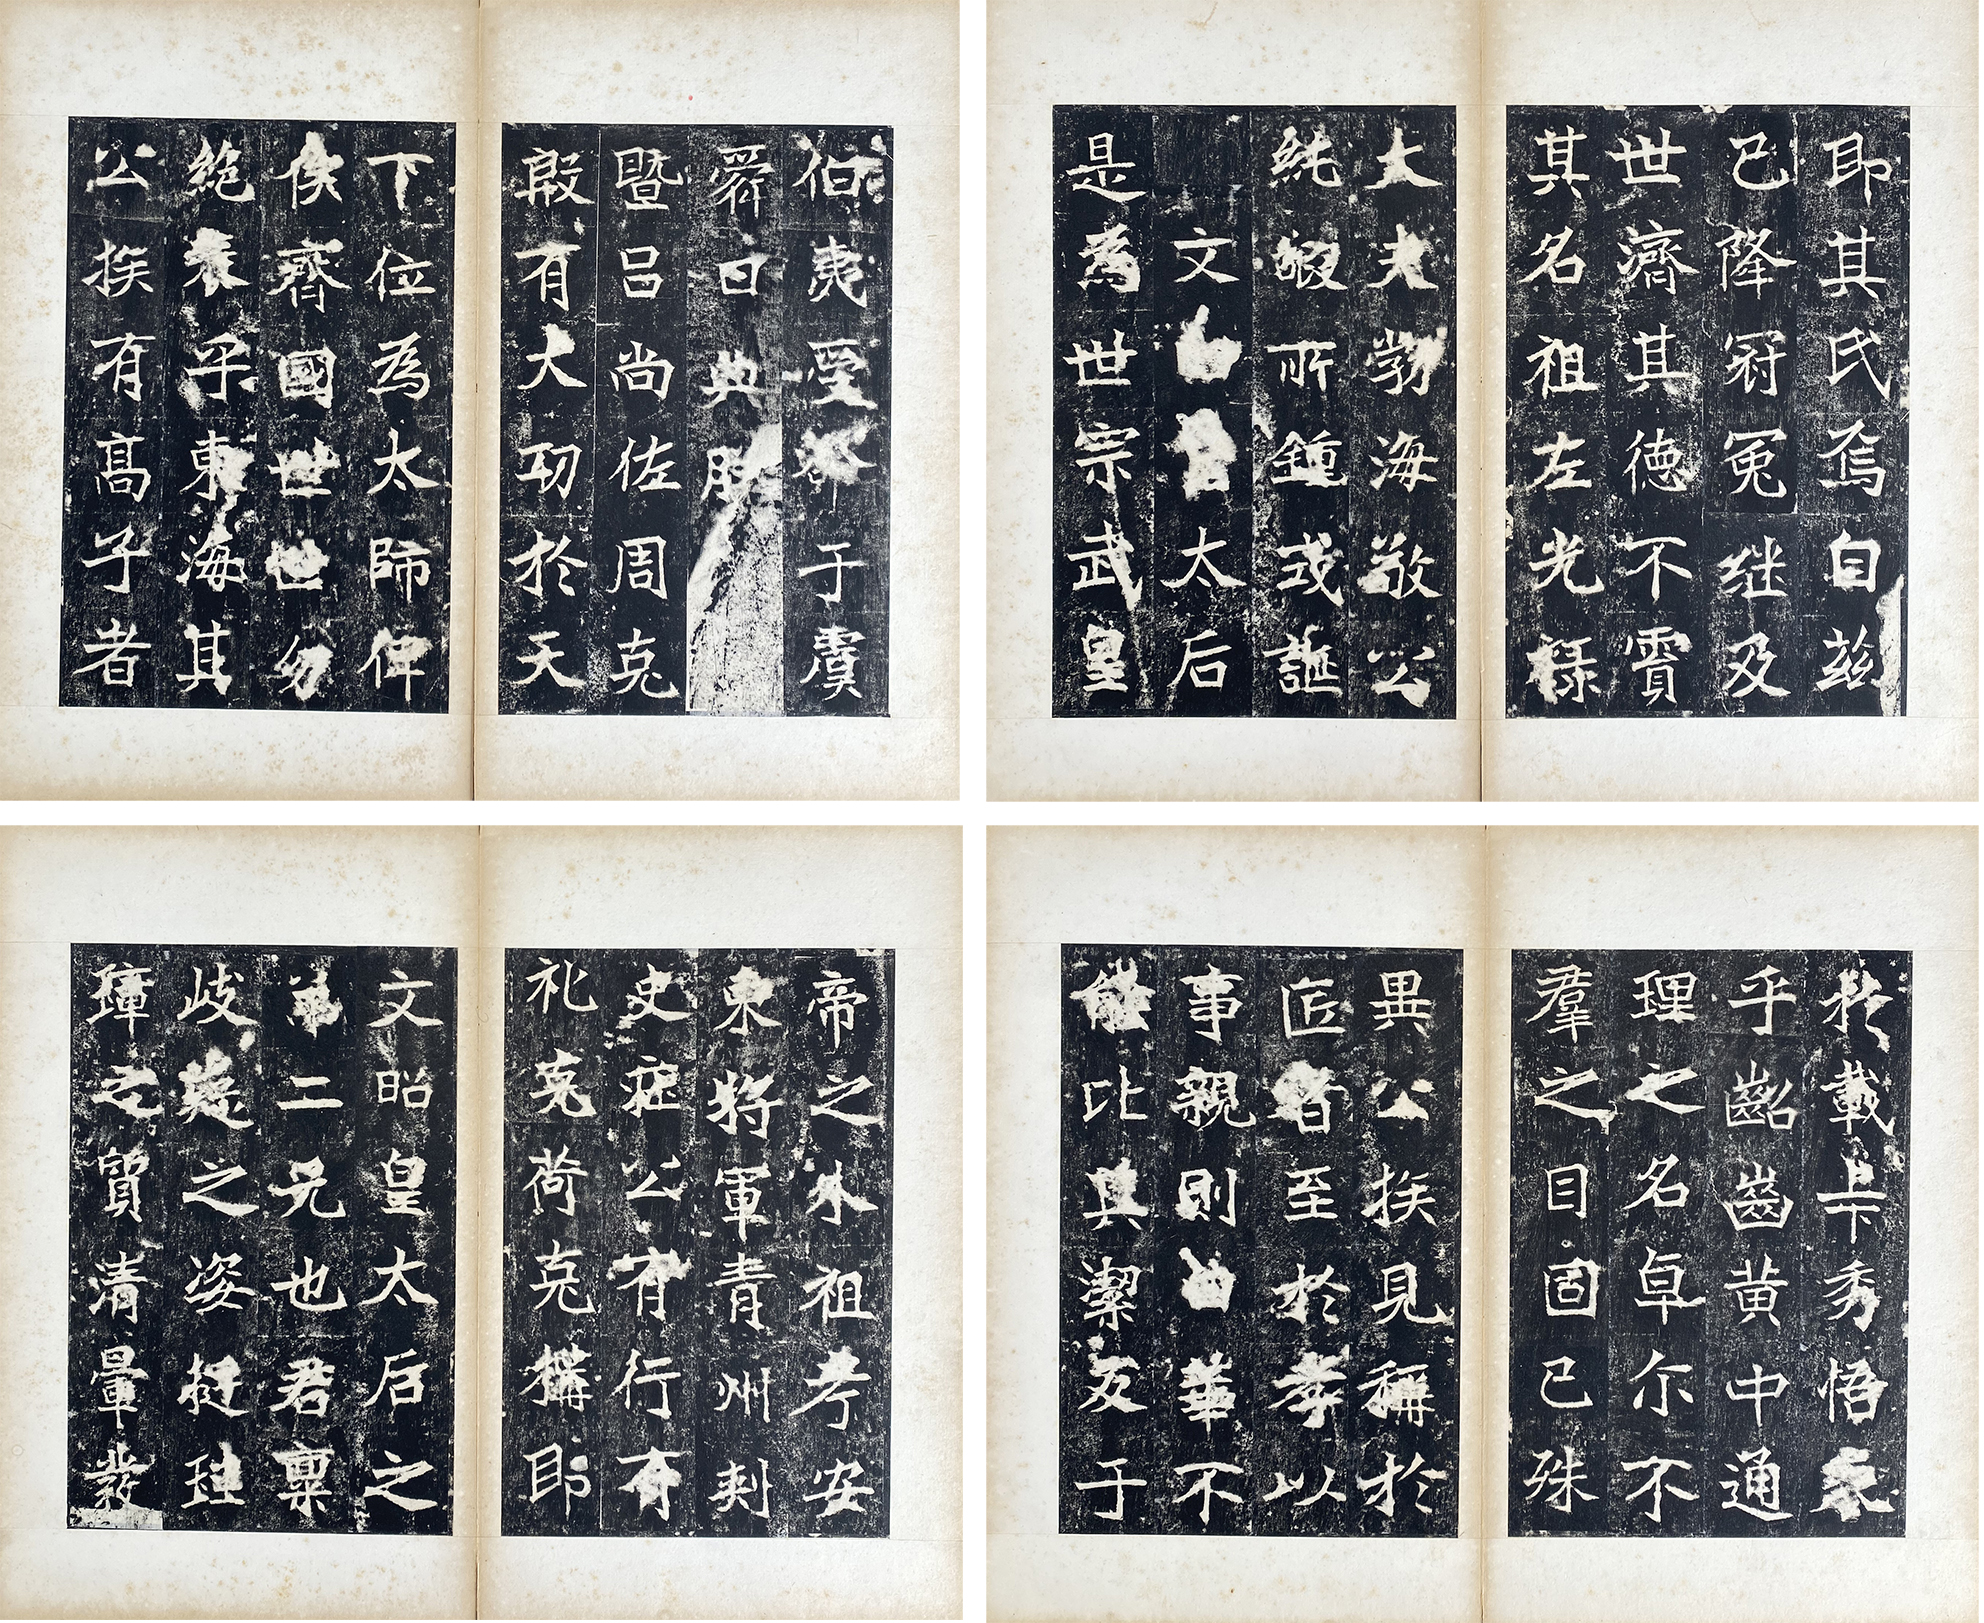 伯夷受命于虞
舜曰典朕
暨呂尚佐周克
殷有大功於天
下位為太師俾
侯齊國世世勿
絕表乎東海其
公族有高子者
即其氏焉自茲
已降冠冕継及
世濟其德不霣
其名祖左光祿
大夫勃海敬公
純嘏所鍾或誕
文昭皇太后
是為世宗武皇
帝之外祖考安
東將軍青州刾
史莊公有行有
礼克荷克構即
文昭皇太后之
第二兄也君稟
岐嶷之姿挺珪
璋之質清暈發
於載弄秀悟
乎齠齒黃中通
理之名卓尔不
羣之目固已殊
異公族見稱於
匠者至於孝以
事親則曾華不
能比其潔友于